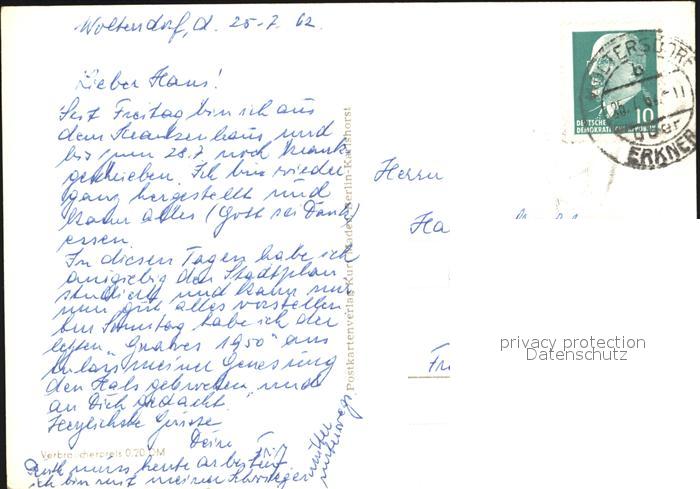 Woltersdorf, d. 25.7.62.
Lieber Hans!
Seit Freitag bin ich aus
dem Krankenhaus und
bis zum 28.7. noch krank
geschrieben. Ich bin wieder
ganz hergestellt und
kann alles (Gott sei Dank)
essen.
In diesen Tagen habe ich
ausgiebig den Stadtplan
studiert und kann mir
nun gut alles vorstellen
Am Sonntag habe ich der
letzten „Graves 1950" aus
Anlass meiner Genesung
den Hals gebrochen und
an Dich gedacht.
Herzlichste Grüsse
Deine
Ruth muss heute arbeiten,
ich bin mit meiner Schwieger
mutter
unterwegs.
Verbraucherpreis 0.20 DM
Postkartenverlag Kurt Mader, Berlin-Karlshorst
Herrn
Ha
Fr
DEUTSCHE
DEMOKRATISCHE REPUBLIK
10
WOLTERSDORF
b
über
ERKNER
privacy protection
Datenschutz